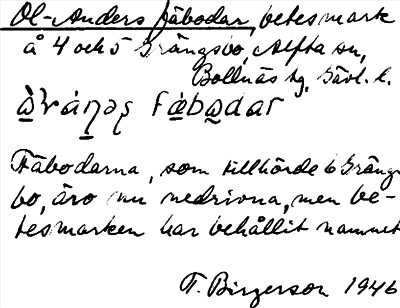 Ol-Anders fäbodar, betesmark
å 4 och 5 Grängsbo, Alfta sn,
Bollnäs tg, Gävl. l.
fæbodar
Fäbodarna, som tillhörde 6 Gräng
bo, äro nu nedrivna, men be-
tesmarken har behållit namnet
T. Birgerson 1946